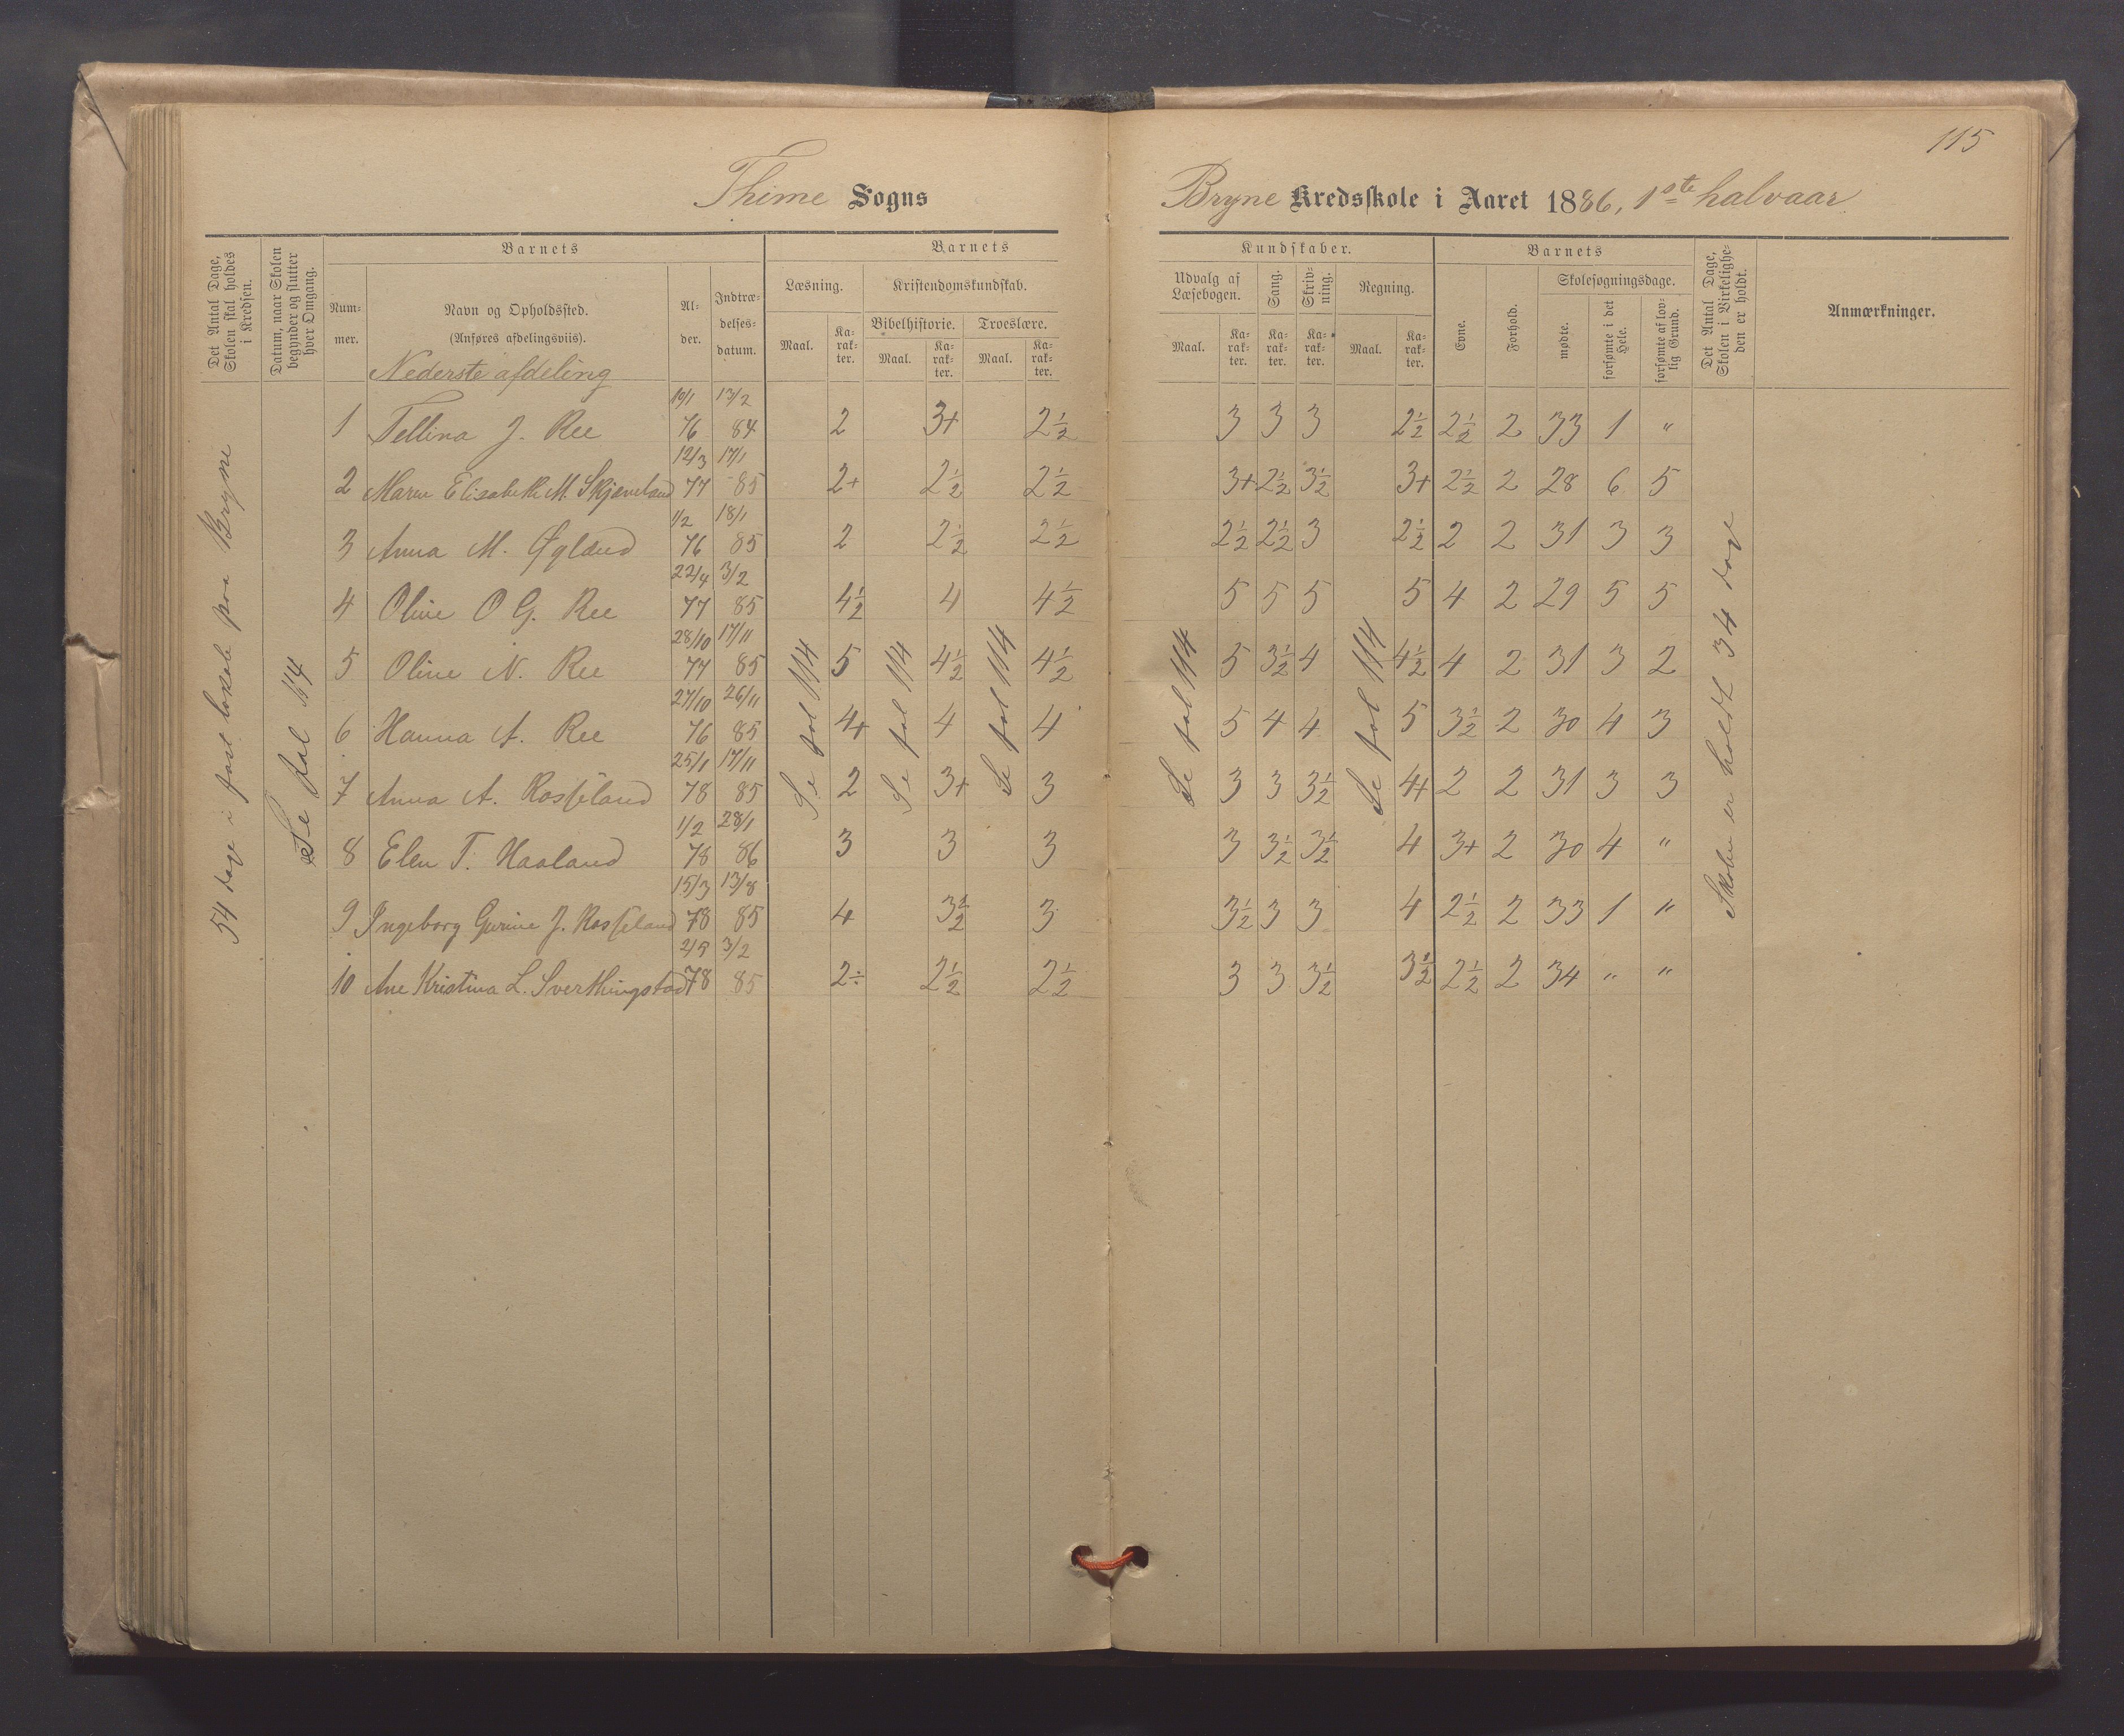 115
Thime Sogns
Bryne Kredsskole i Aaret 1886, 1ste halvaar
Det Antal Dage, Skolen skal holdes i Kredsen.
Datum, naar Skolen begynder og slutter hver Omgang.
Barnets
Nummer.
Navn og Opholdssted.
(Anføres afdelingsviis).
Alder.
Indtrædelses-datum.
Barnets
Læsning.
Maal.
Karakter.
Kristendomskundskab.
Bibelhistorie.
Maal.
Karakter.
Troeslære.
Maal.
Karakter.
Kundskaber.
Udvalg af Læsebogen.
Maal.
Karakter.
Sang.
Karakter.
Skrivning.
Karakter.
Regning.
Maal.
Karakter.
Barnets
Evne.
Forhold.
Skolesøgningsdage.
mødte.
forsømte i det Hele.
forsømte af lovlig Grund.
Det Antal Dage, Skolen i Virkeligheden er holdt.
Anmærkninger.
Nederste afdeling
54 dage i fast lokale paa Bryne
Se fol 114
Se fol 114
Se fol 114
Se fol 114
Se fol 114
Se fol 114
Skolen er holdt 34 dage
1 Tellina J. Ree 19/1 76 13/2 84 2 3+ 2½ 3 3 3 2½ 2½ 2 33 1 "
2 Maren Elisabeth M. Skjæveland 12/3 77 17/1 85 2+ 2½ 2½ 3+ 2½ 3½ 3+ 2½ 2 28 6 5
3 Anna M. Øgland 1/2 76 18/1 85 2 2½ 2½ 2½ 2½ 3 2½ 2 2 31 3 3
4 Oline O G. Ree 22/4 77 3/2 85 4½ 4 4½ 5 5 5 5 4 2 29 5 5
5 Oline N. Ree 28/10 77 17/11 85 5 4½ 4½ 5 3½ 4 4½ 4 2 31 3 2
6 Hanna A. Ree 27/10 76 26/11 85 4+ 4 4 5 4 4 5 3½ 2 30 4 3
7 Anna A. Rosseland 25/1 78 17/11 85 2 3+ 3 3 3 3½ 4+ 2 2 31 3 3
8 Elen T. Haaland 1/2 78 28/1 86 3 3 3 3 3½ 3½ 4 3+ 2 30 4 "
9 Ingeborg Gurine J. Rosseland 15/3 78 13/8 85 4 3½ 3 3½ 3 3 4 2½ 2 33 1 "
10 Ane Kristina L. Sverthingstad 2/5 78 3/2 85 2÷ 2½ 2½ 3 3 3½ 3½ 2½ 2 34 " "